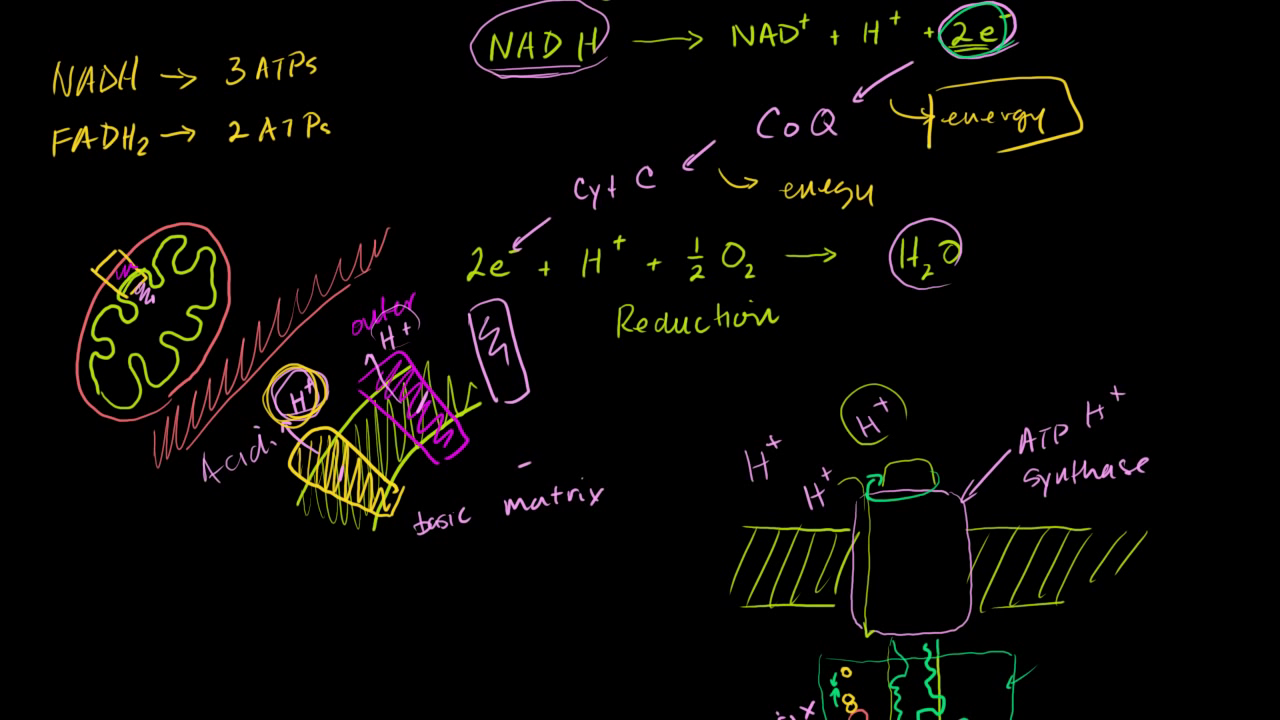 NADH → NAD⁺ + H⁺ + 2e⁻
NADH → 3 ATPs
FADH₂ → 2 ATPs
CoQ
energy
Cyt C
energy
2e⁻ + H⁺ + ½ O₂ → H₂O
Reduction
outer
H⁺
H⁺
Acidi
basic matrix
H⁺
H⁺
H⁺
ATP H⁺
synthase